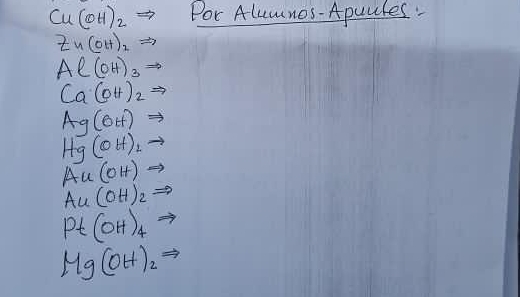 Cu(OH)₂ ⇒ Por Alumnos-Apuntes:
Zn(OH)₂ ⇒
Al(OH)₃ ⇒
Ca(OH)₂ ⇒
Ag(OH) ⇒
Hg(OH)₂ ⇒
Au(OH) ⇒
Au(OH)₂ ⇒
Pt(OH)₄ ⇒
Mg(OH)₂ ⇒